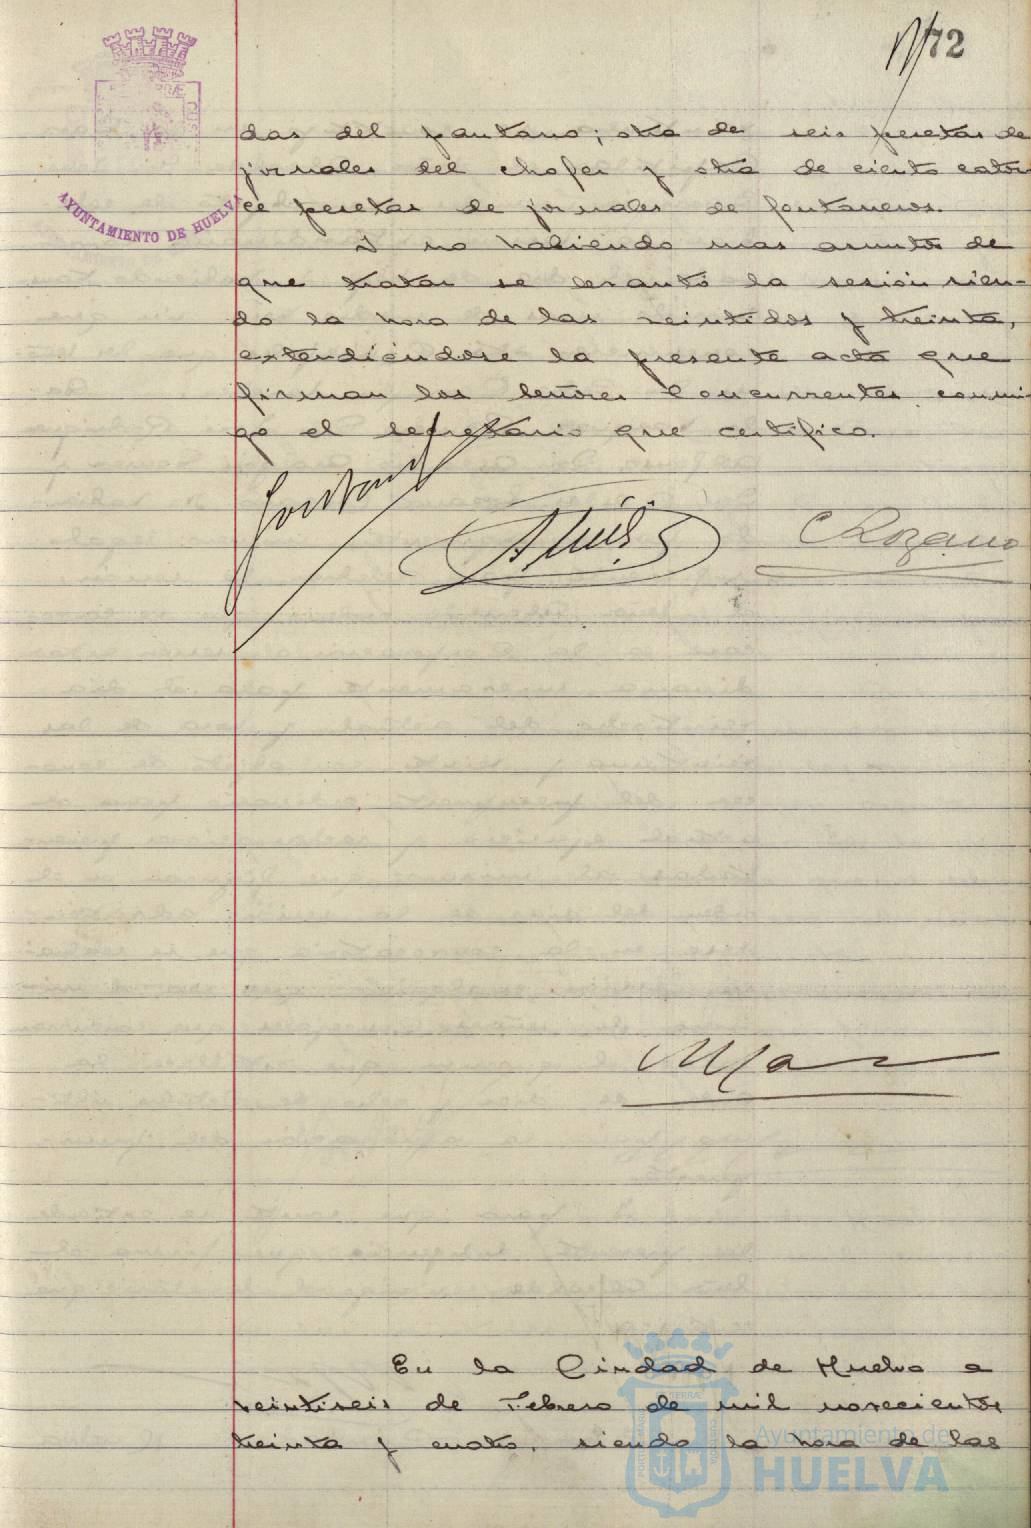 72
AYUNTAMIENTO DE HUELVA
das del pantano; otra de seis pesetas de
jornales del chofer y otra de ciento cator
ce pesetas de jornales de fontaneros.
Y no habiendo mas asuntos de
que tratar se levantó la sesión sien-
do la hora de las veintidos y treinta,
extendiéndose la presente acta que
firman los Señores Concurrentes conmi-
go el secretario que certifico.
Lozano
En la Ciudad de Huelva a
veintiseis de Febrero de mil novecientos
treinta y cuatro, siendo la hora de las
Ayuntamiento de
HUELVA